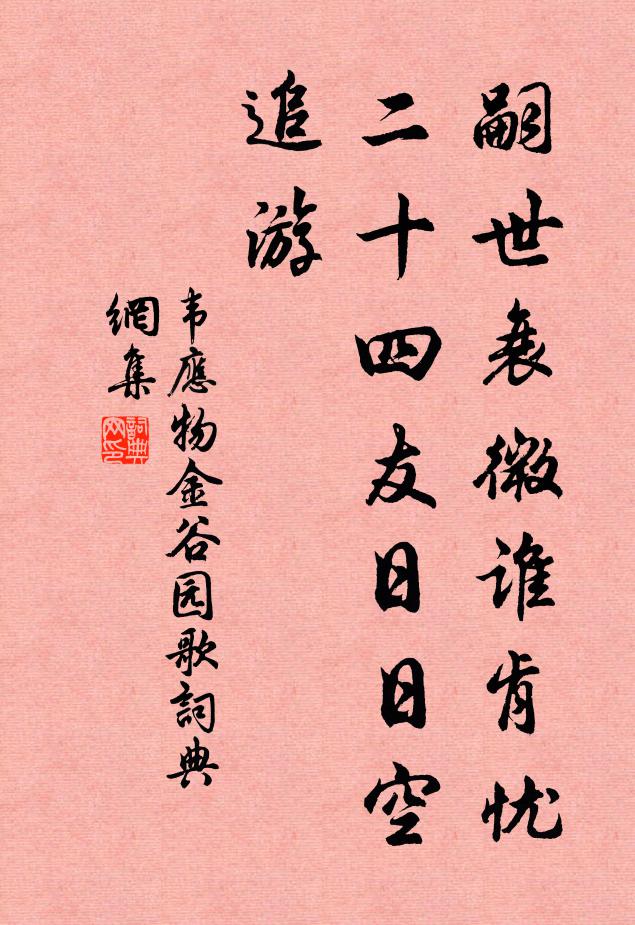 嗣世衰微谁肯忧
二十四友日日空
追游
韦應物金谷园歌詞典
網集
詞典
网印